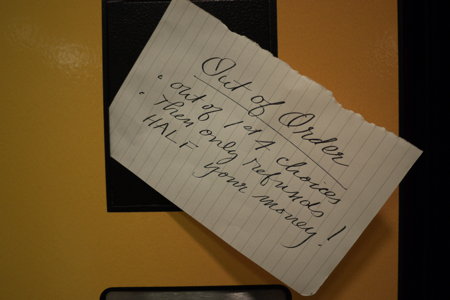 Out of Order
• out of 1st 4 choices
• Then only refunds
HALF your money!